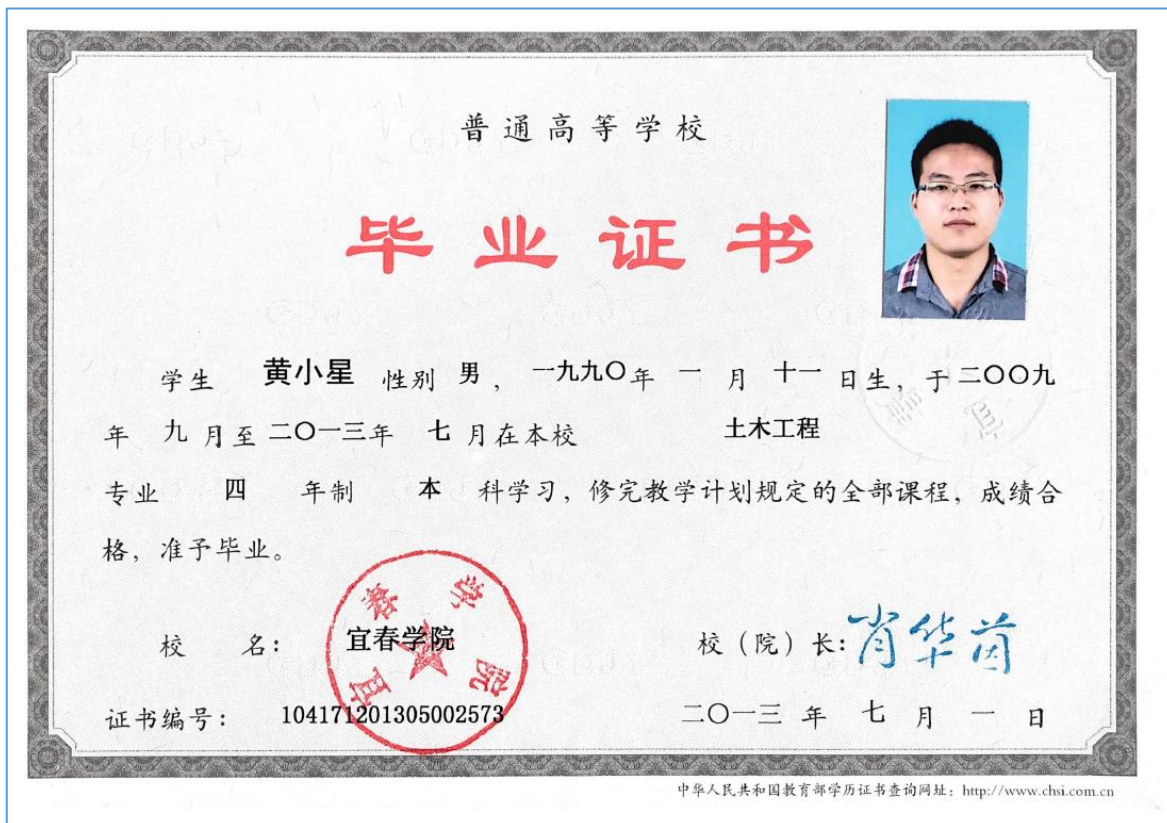 普通高等学校
毕业证书
学生 黄小星 性别 男，一九九〇年 一 月 十一 日生，于二〇〇九
年 九 月至二〇一三年 七 月在本校 土木工程
专业 四 年制 本 科学习，修完教学计划规定的全部课程，成绩合
格，准予毕业。
宜春学院
校 名： 宜春学院 校（院）长：肖华茵
证书编号： 104171201305002573 二〇一三 年 七 月 一 日
中华人民共和国教育部学历证书查询网址：http://www.chsi.com.cn